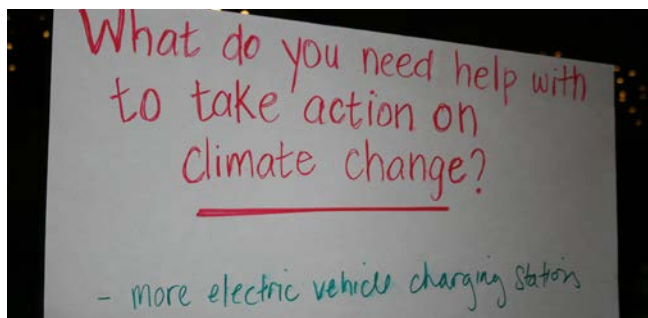 What do you need help with
to take action on
climate change?
- more electric vehicle charging stations